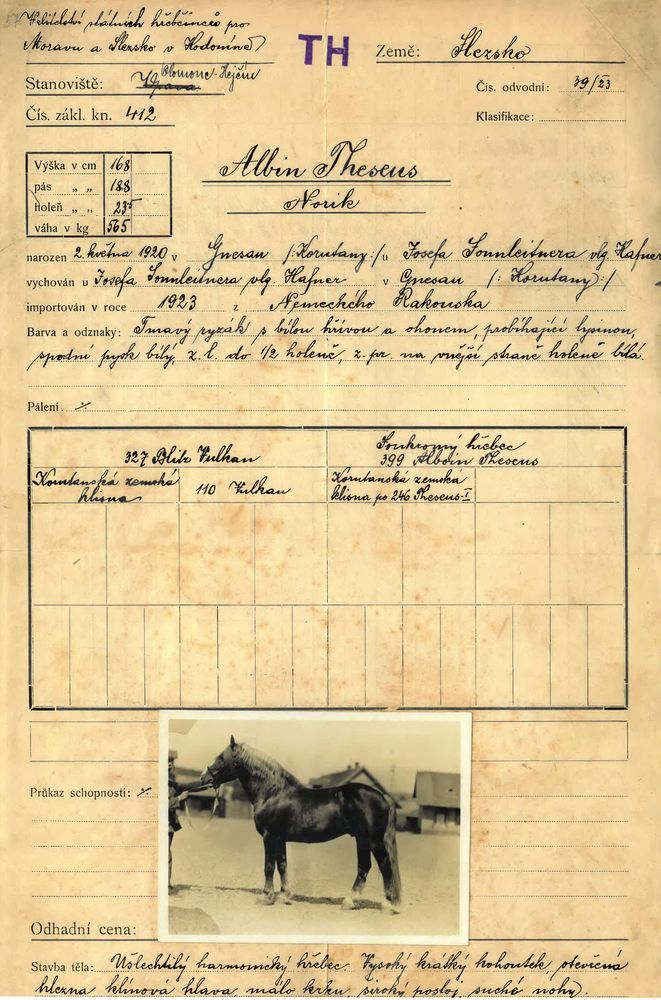 Velitelství státních hřebčinců pro
Moravu a Slezsko v Hodoníně
TH
Země: Slezsko
Stanoviště: Opava Olomouc-Hejčín
Čís. odvodní: 39/23
Čís. zákl. kn. 412
Klasifikace:
Albin Theseus
Norik
Výška v cm 168
pás „ „ 188
holeň „ „ 23⁵
váha v kg 565
narozen 2. května 1920 v Gnesau /:Korutany:/ u Josefa Sonnleitnera vlg. Hafner
vychován u Josefa Sonnleitnera vlg. Hafner v Gnesau /:Korutany:/
importován v roce 1923 z Německého Rakouska
Barva a odznaky: Tmavý ryzák s bílou hřívou a ohonem, probíhající lysinou,
spodní pysk bílý, z. l. do 1/2 holeně, z. pr. na vnější straně holeně bílá.
Pálení. ./.
327 Blitz Vulkan
Soukromý hřebec
399 Alboin Theseus
Korutanská zemská
klisna
110 Vulkan
Korutanská zemská
klisna po 246 Theseus-I
Průkaz schopnosti: ./.
Odhadní cena:
Stavba těla: Ušlechtilý harmonický hřebec. Vysoký krátký kohoutek, otevřená
hlezna klínová hlava, málo krku, široký postoj, suché nohy.